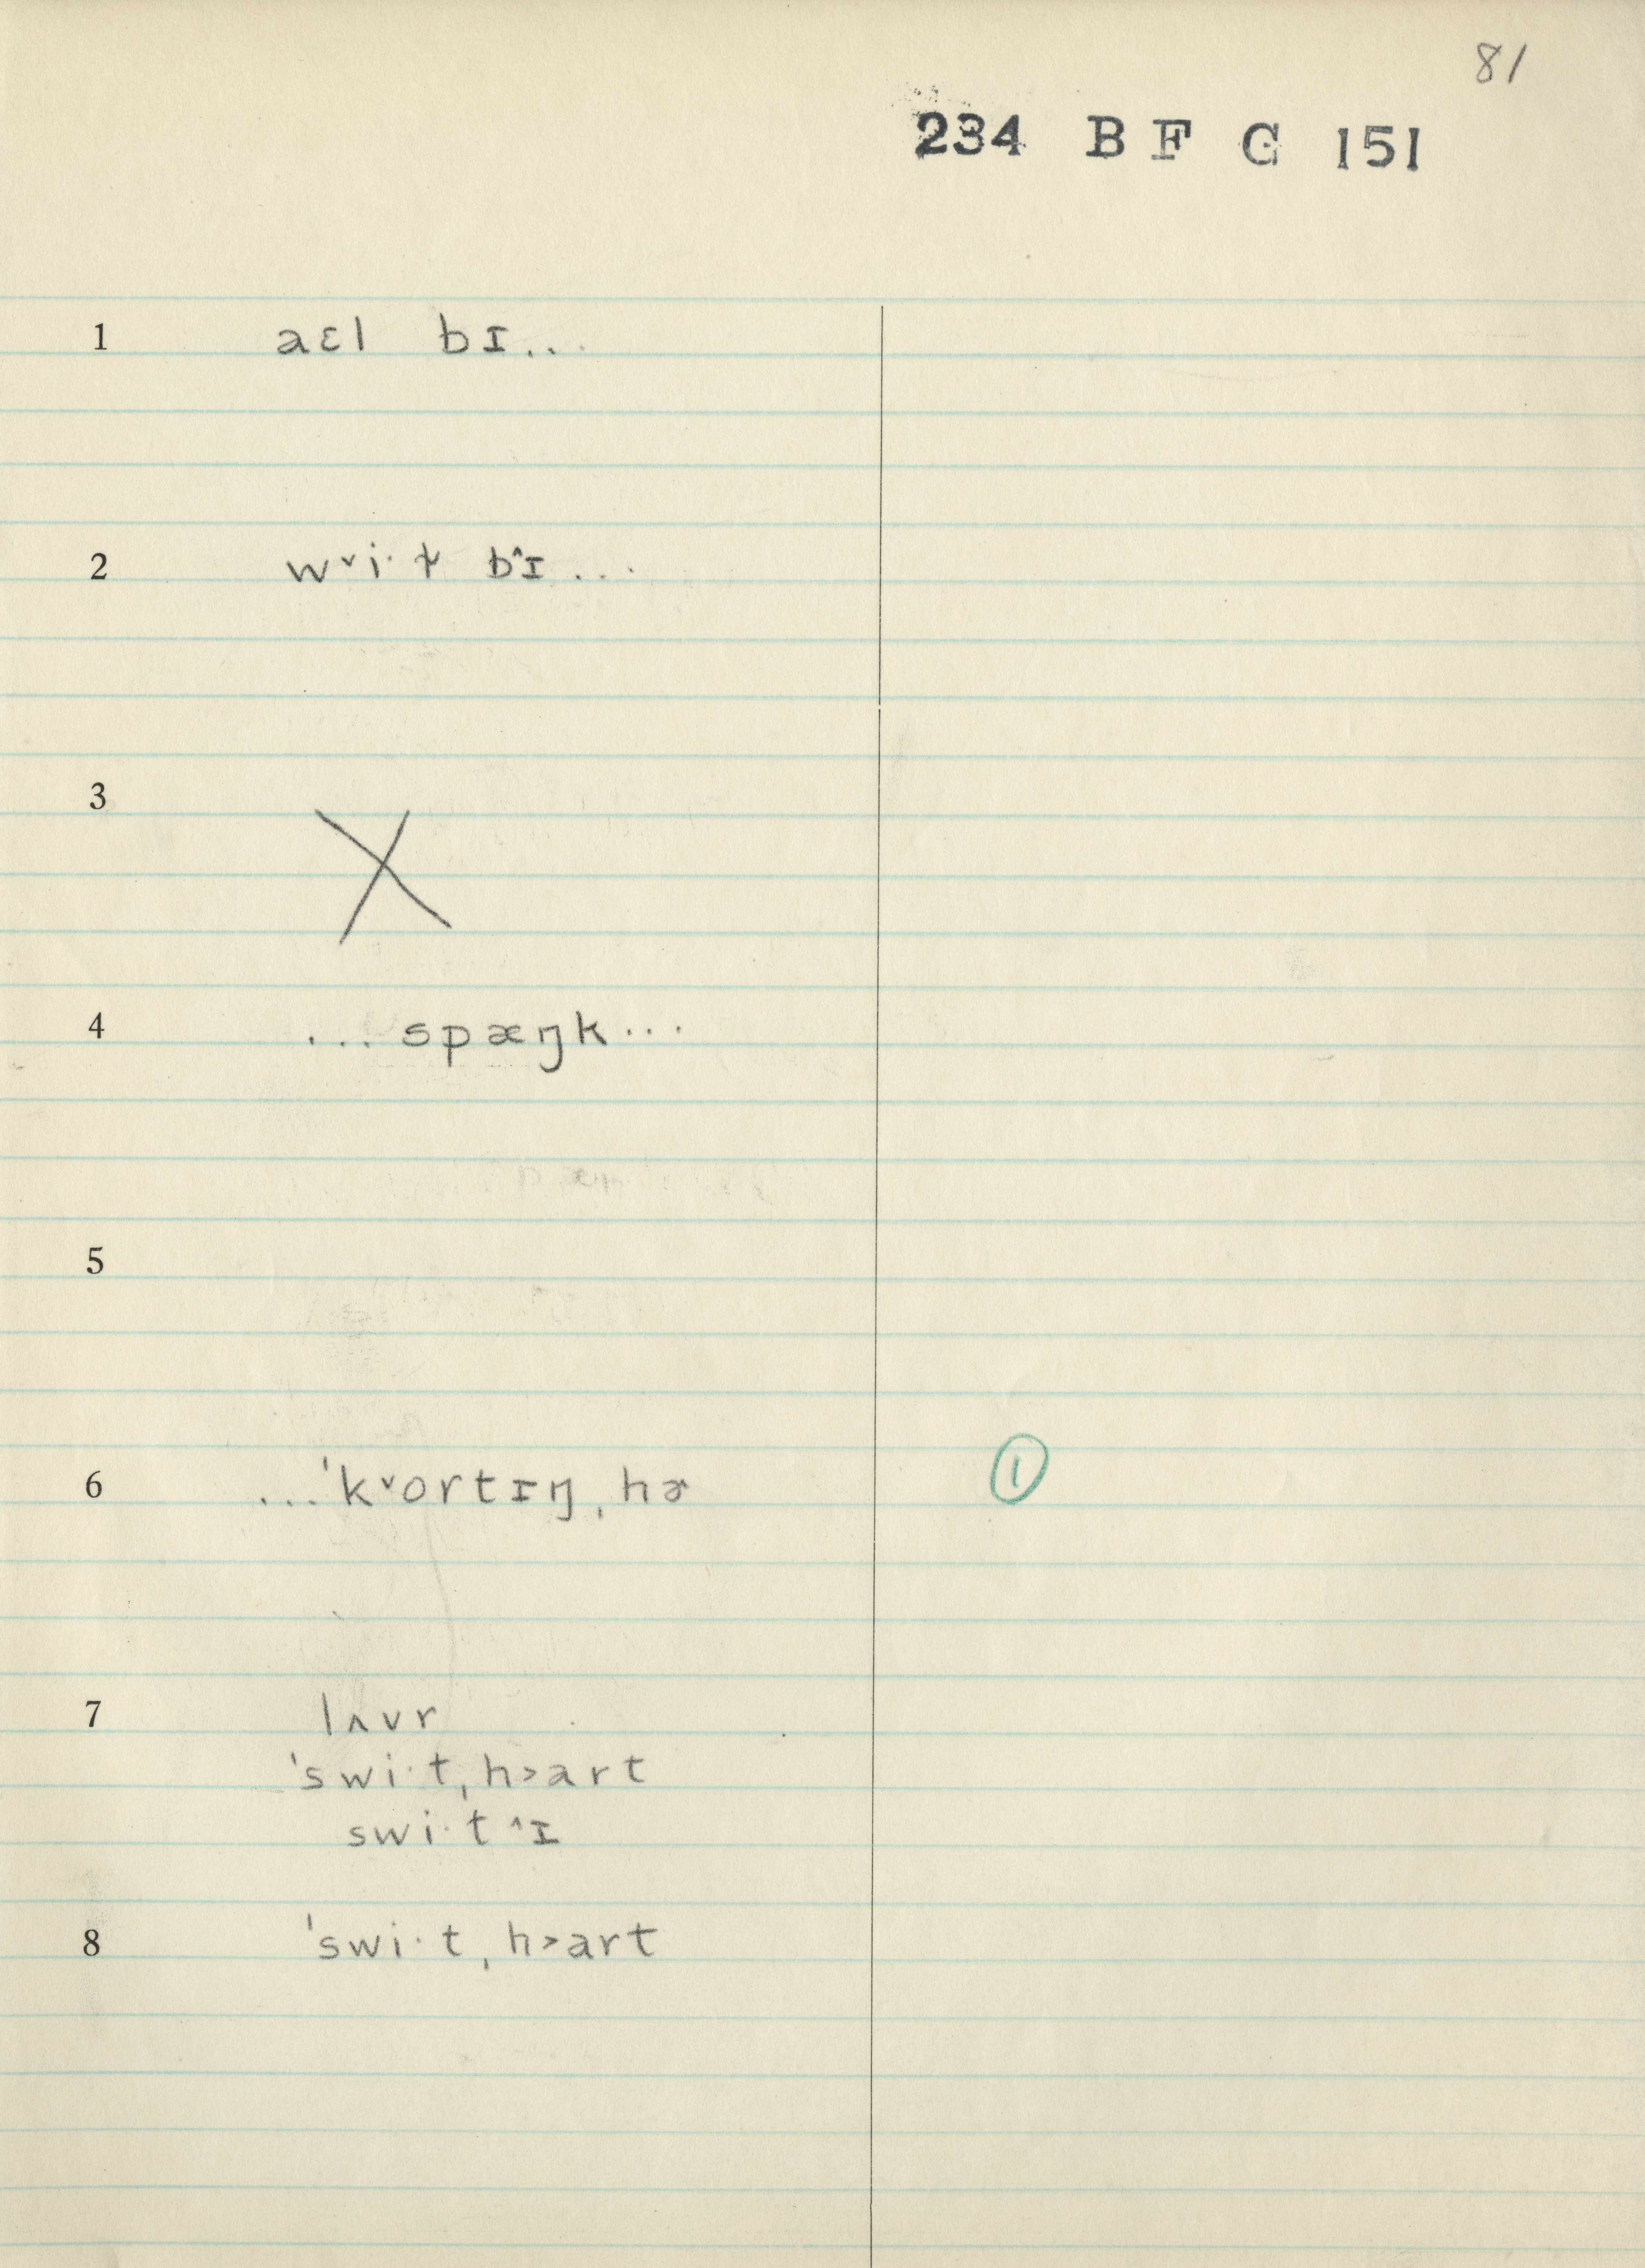 81
234 B F G 151
1 aɛl bɪ...
2 w˅i· t̬ b˄ɪ...
3 X
4 ...spæŋk...
5
6 ...ˈk˅ortɪŋˌhɚ ①
7 lʌvr
ˈswi·tˌh˃art
swi·t˄ɪ
8 ˈswi·tˌh˃art